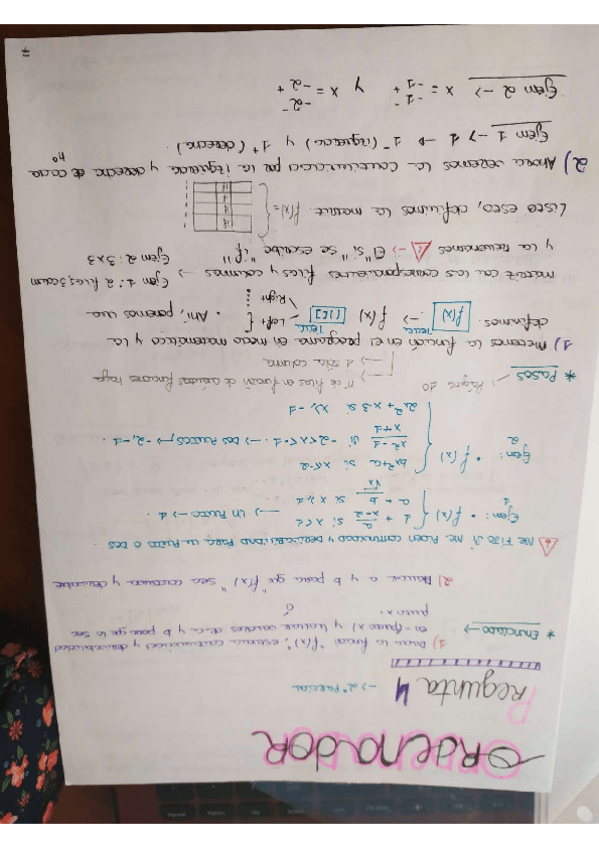 ORDENADOR
Pregunta 4 → 2º Parcial
* Enunciado → 1) Dada la función "f(x)", estudia continuidad y derivabilidad
en (punto x) y hallar valores de a y b para que lo sea
punto x. ó
2) Hallar a y b para que "f(x)" sea continua y derivable
Me fijo si me piden continuidad y derivabilidad para un punto o dos.
Ejem: 1 • f(x) { 1 + a/(x-2) si x<1
a + b/√x si x≥1 → Un punto → 1
Ejem: 2 • f(x) { bx²+a si x≤-2
x²-1/x+1 si -2<x≤-1 → Dos puntos → -2, -1.
2x²+x-3 si x>-1
* Pasos → Página 10 → nº de filas en función de cuántas funciones haya
→ 1 sola columna
1) Metemos la función en el programa en modo matemático y la
definimos. f(x) Tecla → f(x) [|[] Tecla { Left Right • Ahí, ponemos una
matriz con las correspondientes filas y columnas → Ejem 1: 2 filas, 1 colum
y la rellenamos → El "si" se escribe "if" Ejem 2: 3x3
Listo esto, definimos la matriz. f(x)=
2) Ahora veremos la continuidad por la izquierda y derecha de cada nº
Ejem 1 → 1 → 1⁻ (izquierda) y 1⁺ (derecha).
Ejem 2 → x = -1⁻ -1⁺ y x = -2⁻ -2⁺
7